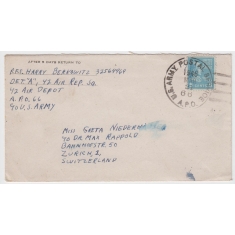 AFTER 5 DAYS RETURN TO
PFC. HARRY BERKOWITZ
DET. "A", 42 AIR REP. SQ.
42 AIR DEPOT
A.P.O. 66
℅ U.S. ARMY
U.S. ARMY POSTAL
A.P.O.
MISS GRETA
℅ DR. MAX RAPPOLD
BAHNHOFSTR. 50
ZURICH, 1
SWITZERLAND